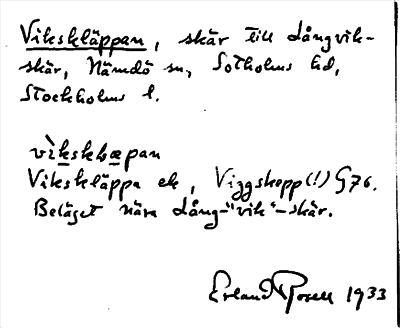 Vikskläppan, skär till Långvik-
skär, Nämdö sn, Sotholms hd,
Stockholms l.
Vikskläppa ek, Viggskopp(!) G76.
Beläget nära Lång-"vik"-skär.
Erland Rosell 1933